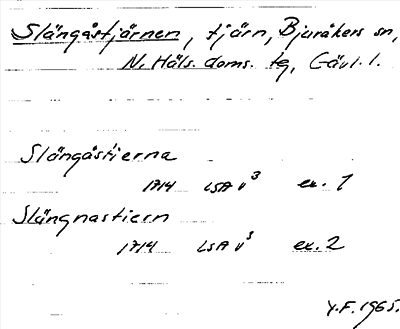 Slängåstjärnen, tjärn, Bjuråkers sn,
N. Häls. doms. tg, Gävl. l.
Slängåstierna
1714 LSA V³ ex. 1
Slängnastiern
1714 LSA V³ ex. 2
Y.F. 1965.